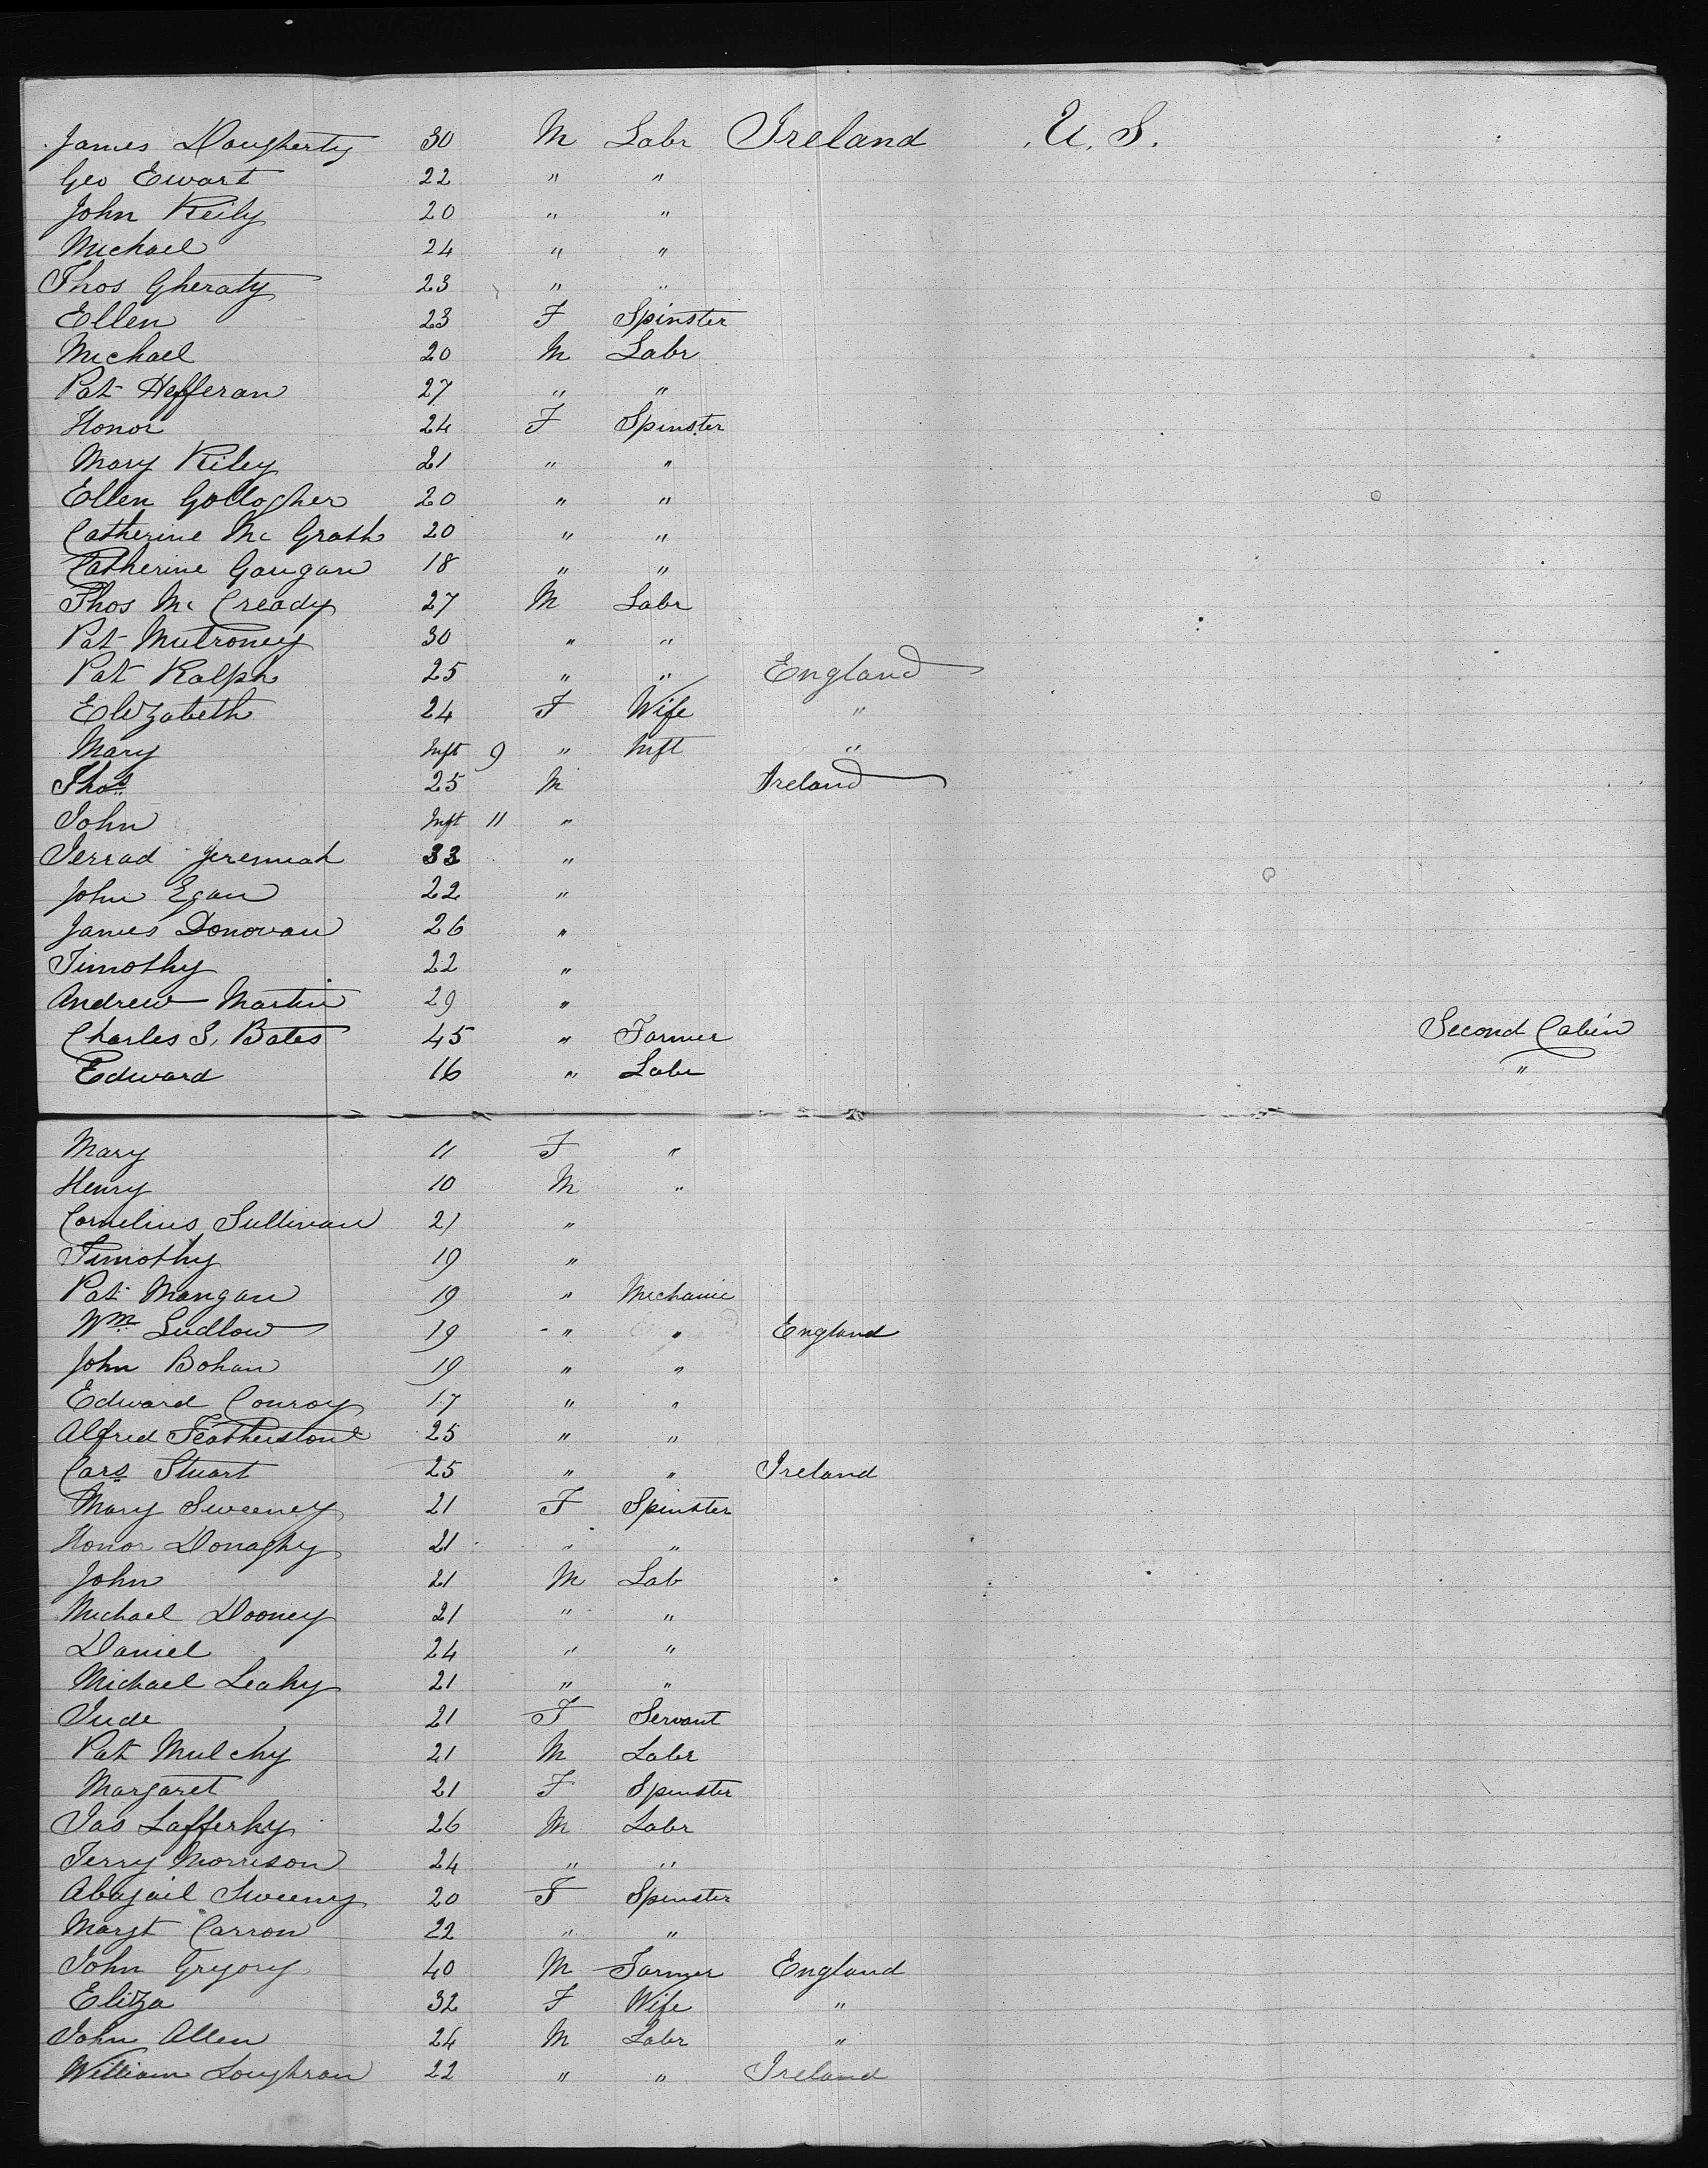 James Dougherty 30 M Labr Ireland U.S.
Geo Ewart 22 " "
John Reily 20 " "
Michael 24 " "
Thos Gheraty 23 " "
Ellen 23 F Spinster
Michael 20 M Labr
Pat Hefferan 27 " "
Honor 24 F Spinster
Mary Riley 21 " "
Ellen Gollogher 20 " "
Catherine Mc Grath 20 " "
Catherine Gaugan 18 " "
Thos Mc Cready 27 M Labr
Pat Mulroney 30 " "
Pat Ralph 25 " " England
Elizabeth 24 F Wife "
Mary Inft 9 " Inft "
Thos 25 M Ireland
John Inft 11 "
Jerrad Jeremiah 33 "
John Egan 22 "
James Donovan 26 "
Timothy 22 "
Andrew Martin 29 "
Charles S. Bates 45 " Farmer Second Cabin
Edward 16 " Labr "
Mary 11 F "
Henry 10 M "
Cornelius Sullivan 21 "
Timothy 19 "
Pat Mangan 19 " Mechanic
Wm Ludlow 19 " " England
John Bohan 19 " "
Edward Conroy 17 " "
Alfred Featherstone 25 " "
Cars Stuart 25 " " Ireland
Mary Sweeney 21 F Spinster
Honor Donaghy 21 " "
John 21 M Lab
Michael Dooney 21 " "
Daniel 24 " "
Michael Leahy 21 " "
Jude 21 F Servant
Pat Mulchy 21 M Labr
Margaret 21 F Spinster
Jas Lafferky 26 M Labr
Jerry Morrison 24 " "
Abagail Sweeny 20 F Spinster
Margt Carron 22 " "
John Gregory 40 M Farmer England
Eliza 32 F Wife "
John Allen 24 M Labr "
William Loughran 22 " " Ireland